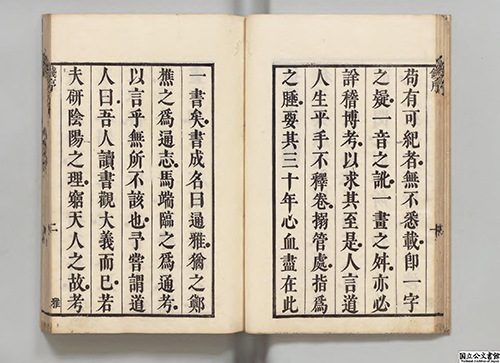 苟有可紀者無不悉載即一字
之疑一音之訛一畫之舛亦必
詮稽博考以求其至是人言道
人生平手不釋卷搦管處指爲
之腫要其三十年心血盡在此
一書矣書成名曰通雅猶之鄭
樵之爲通志馬端臨之爲通考
以言乎無所不該也予嘗謂道
人曰吾人讀書觀大義而已若
夫研陰陽之理窮天人之故考
錢序
二
雅
国立公文書館
National Archives of Japan